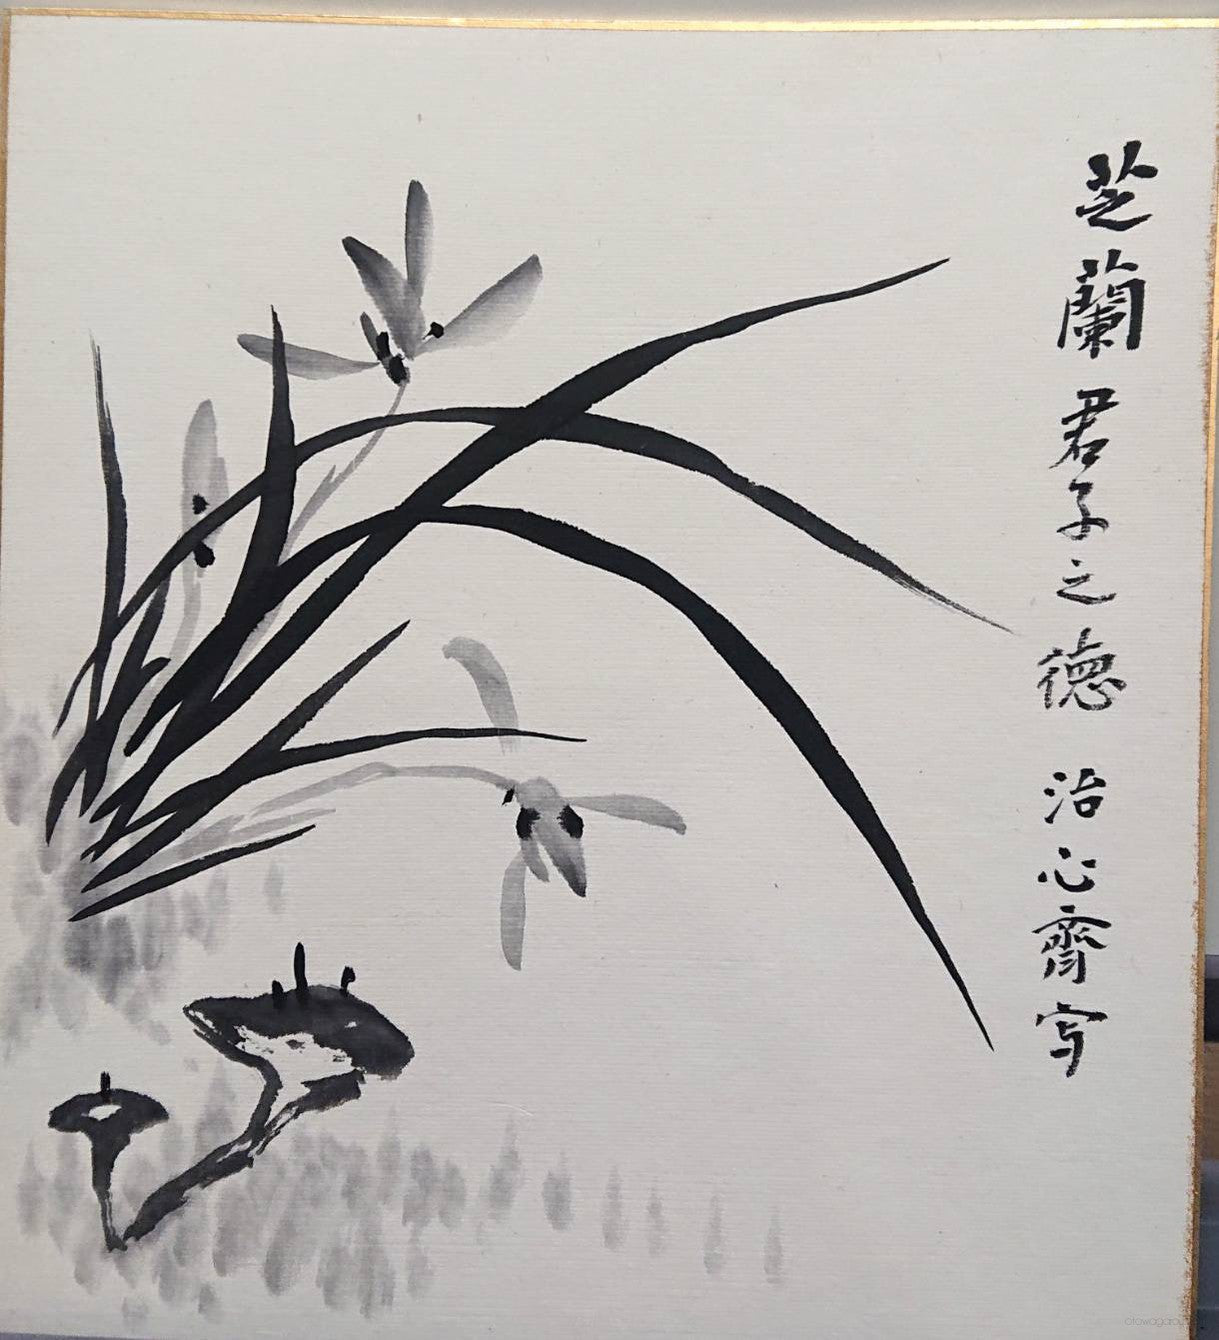 芝蘭君子之徳 治心齊写